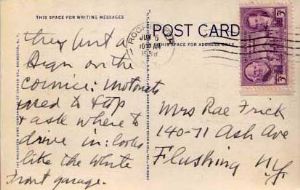 THIS SPACE FOR WRITING MESSAGES
POST CARD
they hunt a
sign on the
cornice; Motorists
used to stop
& ask where to
drive in: looks
like the White
Front garage.
ROC
JUN
10 AM
Mrs Rae Frick
140-71 Ash Ave
Flushing N.Y.